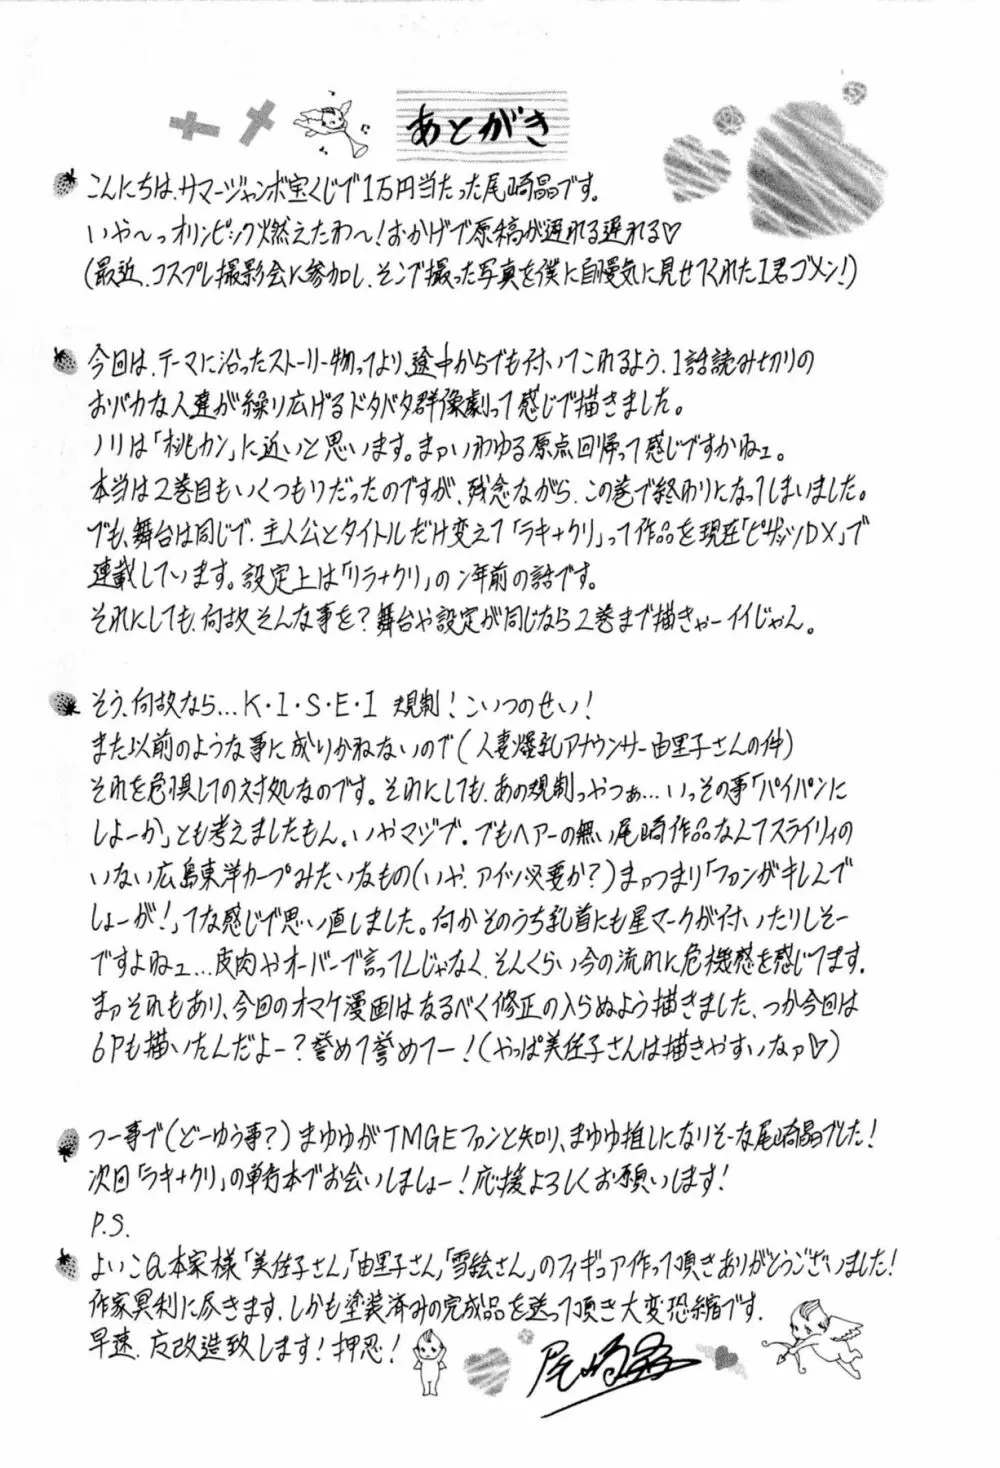 あとがき
こんにちは、サマージャンボ宝くじで1万円当たった尾崎晶です。
いや〜っオリンピック燃えたわ〜!おかげで原稿が遅れる遅れる♡
(最近、コスプレ撮影会に参加し、そこで撮った写真を僕に自慢気に見せてくれたI君ゴメン!)
今回は、テーマに沿ったストーリー物ってより、途中からでも付いてこれるよう、1話読み切りの
おバカな人達が繰り広げるドタバタ群像劇って感じで描きました。
ノリは「桃カン」に近いと思います。まァいわゆる原点回帰って感じですかねェ。
本当は2巻目もいくつもりだったのですが、残念ながら、この巻で終わりになってしまいました。
でも、舞台は同じで、主人公とタイトルだけ変えて「ラキ+クリ」って作品を現在「ピザッツDX」で
連載しています。設定上は「リラ+クリ」の2年前の話です。
それにしても、何故そんな事を?舞台や設定が同じなら2巻まで描きゃーイイじゃん。
そう、何故なら…K・I・S・E・I 規制!こいつのせい!
また以前のような事に成りかねないので(人妻爆乳アナウンサー由里子さんの件)
それを危惧しての対処なのです。それにしても、あの規制っやつぁ…いっその事「パイパンに
しよーか」とも考えましたもん。いやマジで。でもヘアーの無い尾崎作品なんてスライリィの
いない広島東洋カープみたいなもの(いや、アイツ必要か?)まァつまり「ファンがキレんで
しょーが!」てな感じで思い直しました。何かそのうち乳首にも星マークが付いたりしそー
ですよねェ…皮肉やオーバーで言ってんじゃなく、そんくらい今の流れに危機感を感じてます。
まァそれもあり、今回のオマケ漫画はなるべく修正の入らぬよう描きました、つか今回は
6Pも描いたんだよー?誉めて誉めてー!(やっぱ美佐子さんは描きやすいなァ♡)
つー事で(どーゆう事?)まゆゆがTMGEファンと知り、まゆゆ推しになりそーな尾崎晶でした!
次回「ラキ+クリ」の単行本でお会いしましょー!応援よろしくお願いします!
P.S.
よいこQ本家様「美佐子さん」「由里子さん」「雪絵さん」のフィギュア作って頂きありがとうございました!
作家冥利に尽きます、しかも塗装済みの完成品を送って頂き大変恐縮です。
早速、反改造致します!押忍!
尾崎晶